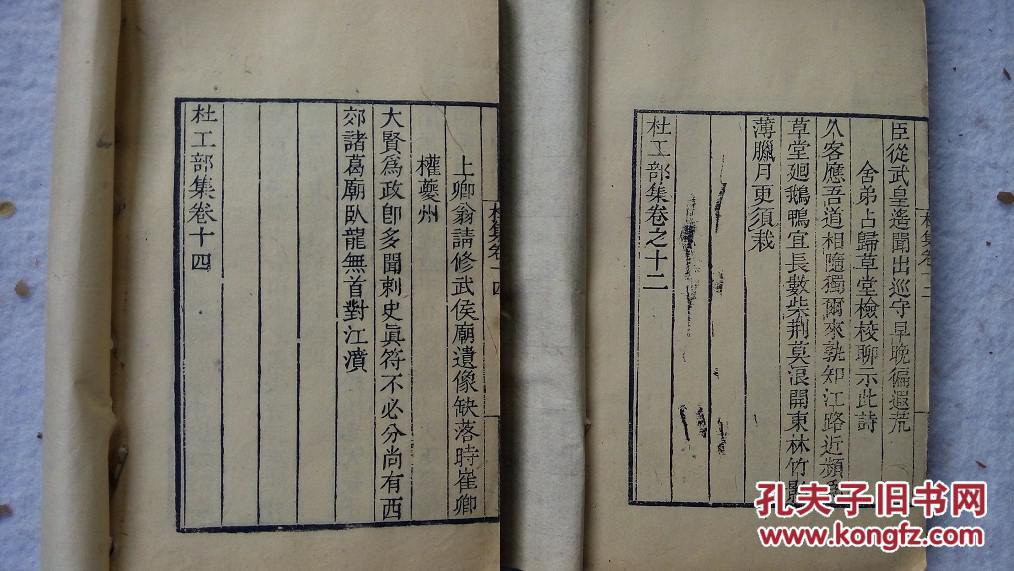 臣從武皇遙聞出巡守早晚徧遐荒
舍弟占歸草堂檢校聊示此詩
久客應吾道相隨獨爾來孰知江路近頻爲
草堂廻鵝鴨宜長數柴荆莫浪開東林竹影
薄臘月更須栽
杜工部集卷之十二
杜集卷十二
上卿翁請修武侯廟遺像缺落時崔卿
權夔州
大賢爲政卽多聞刺史眞符不必分尚有西
郊諸葛廟臥龍無首對江濆
杜工部集卷十四
杜集卷十四
孔夫子旧书网
www.kongfz.com